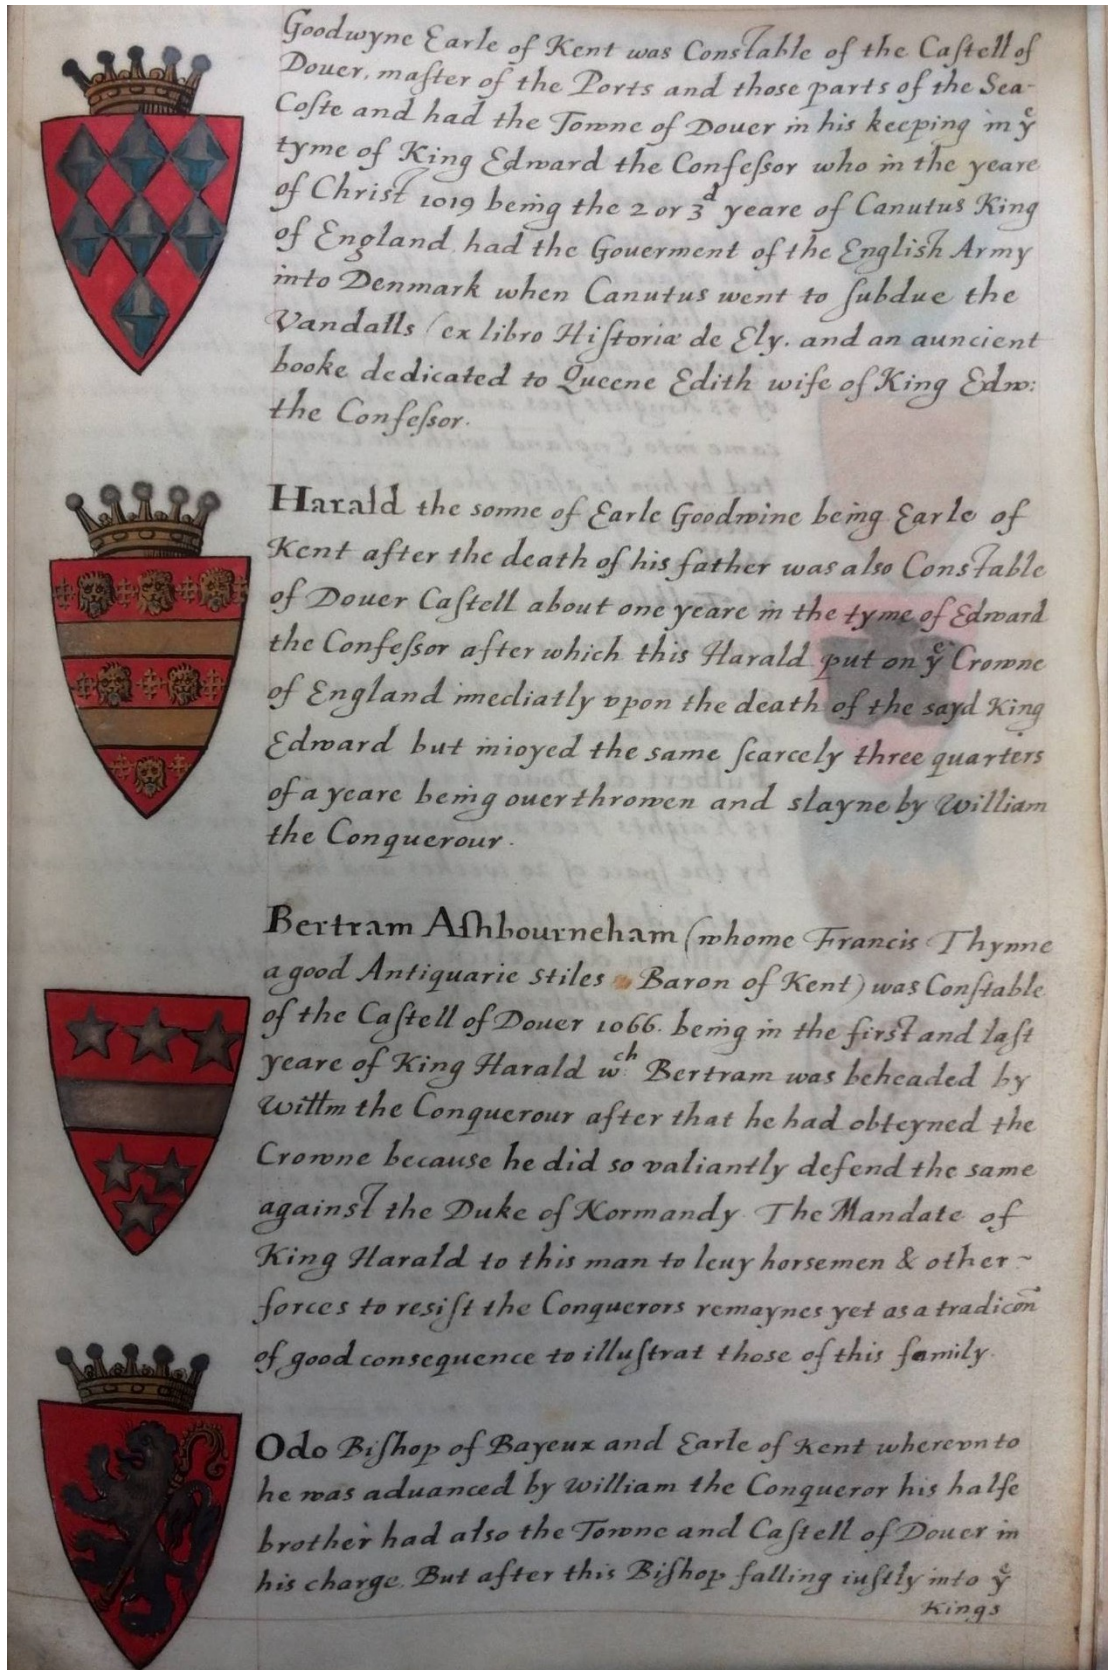 Goodwyne Earle of Kent was Constable of the Caſtell of
Douer, maſter of the Ports and those parts of the Sea-
Coſte and had the Towne of Douer in his keeping in yᵉ
tyme of King Edward the Confeſsor who in the yeare
of Christ 1019 being the 2 or 3ᵈ yeare of Canutus King
of England had the Gouerment of the English Army
into Denmark when Canutus went to ſubdue the
Vandalls (ex libro Hiſtoriæ de Ely. and an auncient
booke dedicated to Queene Edith wife of King Edw:
the Confeſsor.
Harald the sonne of Earle Goodwine being Earle of
Kent after the death of his father was also Constable
of Douer Caſtell about one yeare in the tyme of Edward
the Confeſsor after which this Harald put on yᵉ Crowne
of England imediatly vpon the death of the sayd King
Edward but inioyed the same ſcarcely three quarters
of a yeare being ouerthrowen and slayne by William
the Conquerour.
Bertram Aſhbourneham (whome Francis Thynne
a good Antiquarie stiles Baron of Kent) was Conſtable
of the Caſtell of Douer 1066. being in the first and laſt
yeare of King Harald wᶜʰ: Bertram was beheaded by
Willm the Conquerour after that he had obteyned the
Crowne because he did so valiantly defend the same
against the Duke of Normandy. The Mandate of
King Harald to this man to leuy horsemen & other ~
forces to resiſt the Conquerors remaynes yet as a tradicōn
of good consequence to illuſtrat those of this family.
Odo Biſhop of Bayeux and Earle of Kent wherevnto
he was aduanced by William the Conqueror his halfe
brother had also the Towne and Caſtell of Douer in
his charge. But after this Biſhop falling iuſtly into yᵉ
Kings